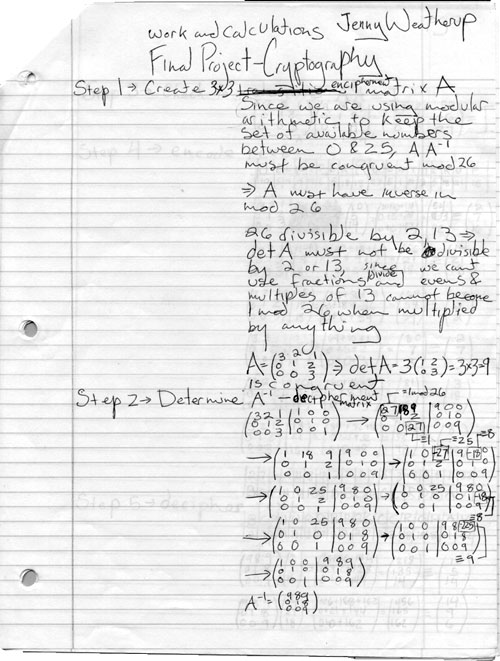 work and calculations Jenny Weatherup
Final Project - Cryptography
Step 1 → Create 3x3 encipherment matrix A
Since we are using modular
arithmetic to keep the
set of available numbers
between 0 & 25, A A⁻¹
must be congruent mod 26
⇒ A must have inverse in
mod 26
26 divisible by 2, 13 ⇒
det A must not be divisible
by 2 or 13, since we can't
use fractions and divide evens &
multiples of 13 cannot become
1 mod 26 when multiplied
by anything
A = (3 2 1 / 0 1 2 / 0 0 3) ⇒ det A = 3(1 2 / 0 3) = 3x3 = 9
is congruent
Step 2 → Determine A⁻¹ - decipherment matrix
≡ 1 mod 26
(3 2 1 / 0 1 2 / 0 0 3 | 1 0 0 / 0 1 0 / 0 0 1) → (27 18 9 / 0 1 2 / 0 0 27 | 9 0 0 / 0 1 0 / 0 0 9)
≡ 1 ≡ 25 ≡ 8
→ (1 18 9 / 0 1 2 / 0 0 1 | 9 0 0 / 0 1 0 / 0 0 9) → (1 0 -27 / 0 1 2 / 0 0 1 | 9 -18 0 / 0 1 0 / 0 0 9)
→ (1 0 25 / 0 1 2 / 0 0 1 | 9 8 0 / 0 1 0 / 0 0 9) → (1 0 25 / 0 1 0 / 0 0 1 | 9 8 0 / 0 1 -18 / 0 0 9)
≡ 8
→ (1 0 25 / 0 1 0 / 0 0 1 | 9 8 0 / 0 1 8 / 0 0 9) → (1 0 0 / 0 1 0 / 0 0 1 | 9 8 -225 / 0 1 8 / 0 0 9)
≡ 9
→ (1 0 0 / 0 1 0 / 0 0 1 | 9 8 9 / 0 1 8 / 0 0 9)
A⁻¹ = (9 8 9 / 0 1 8 / 0 0 9)